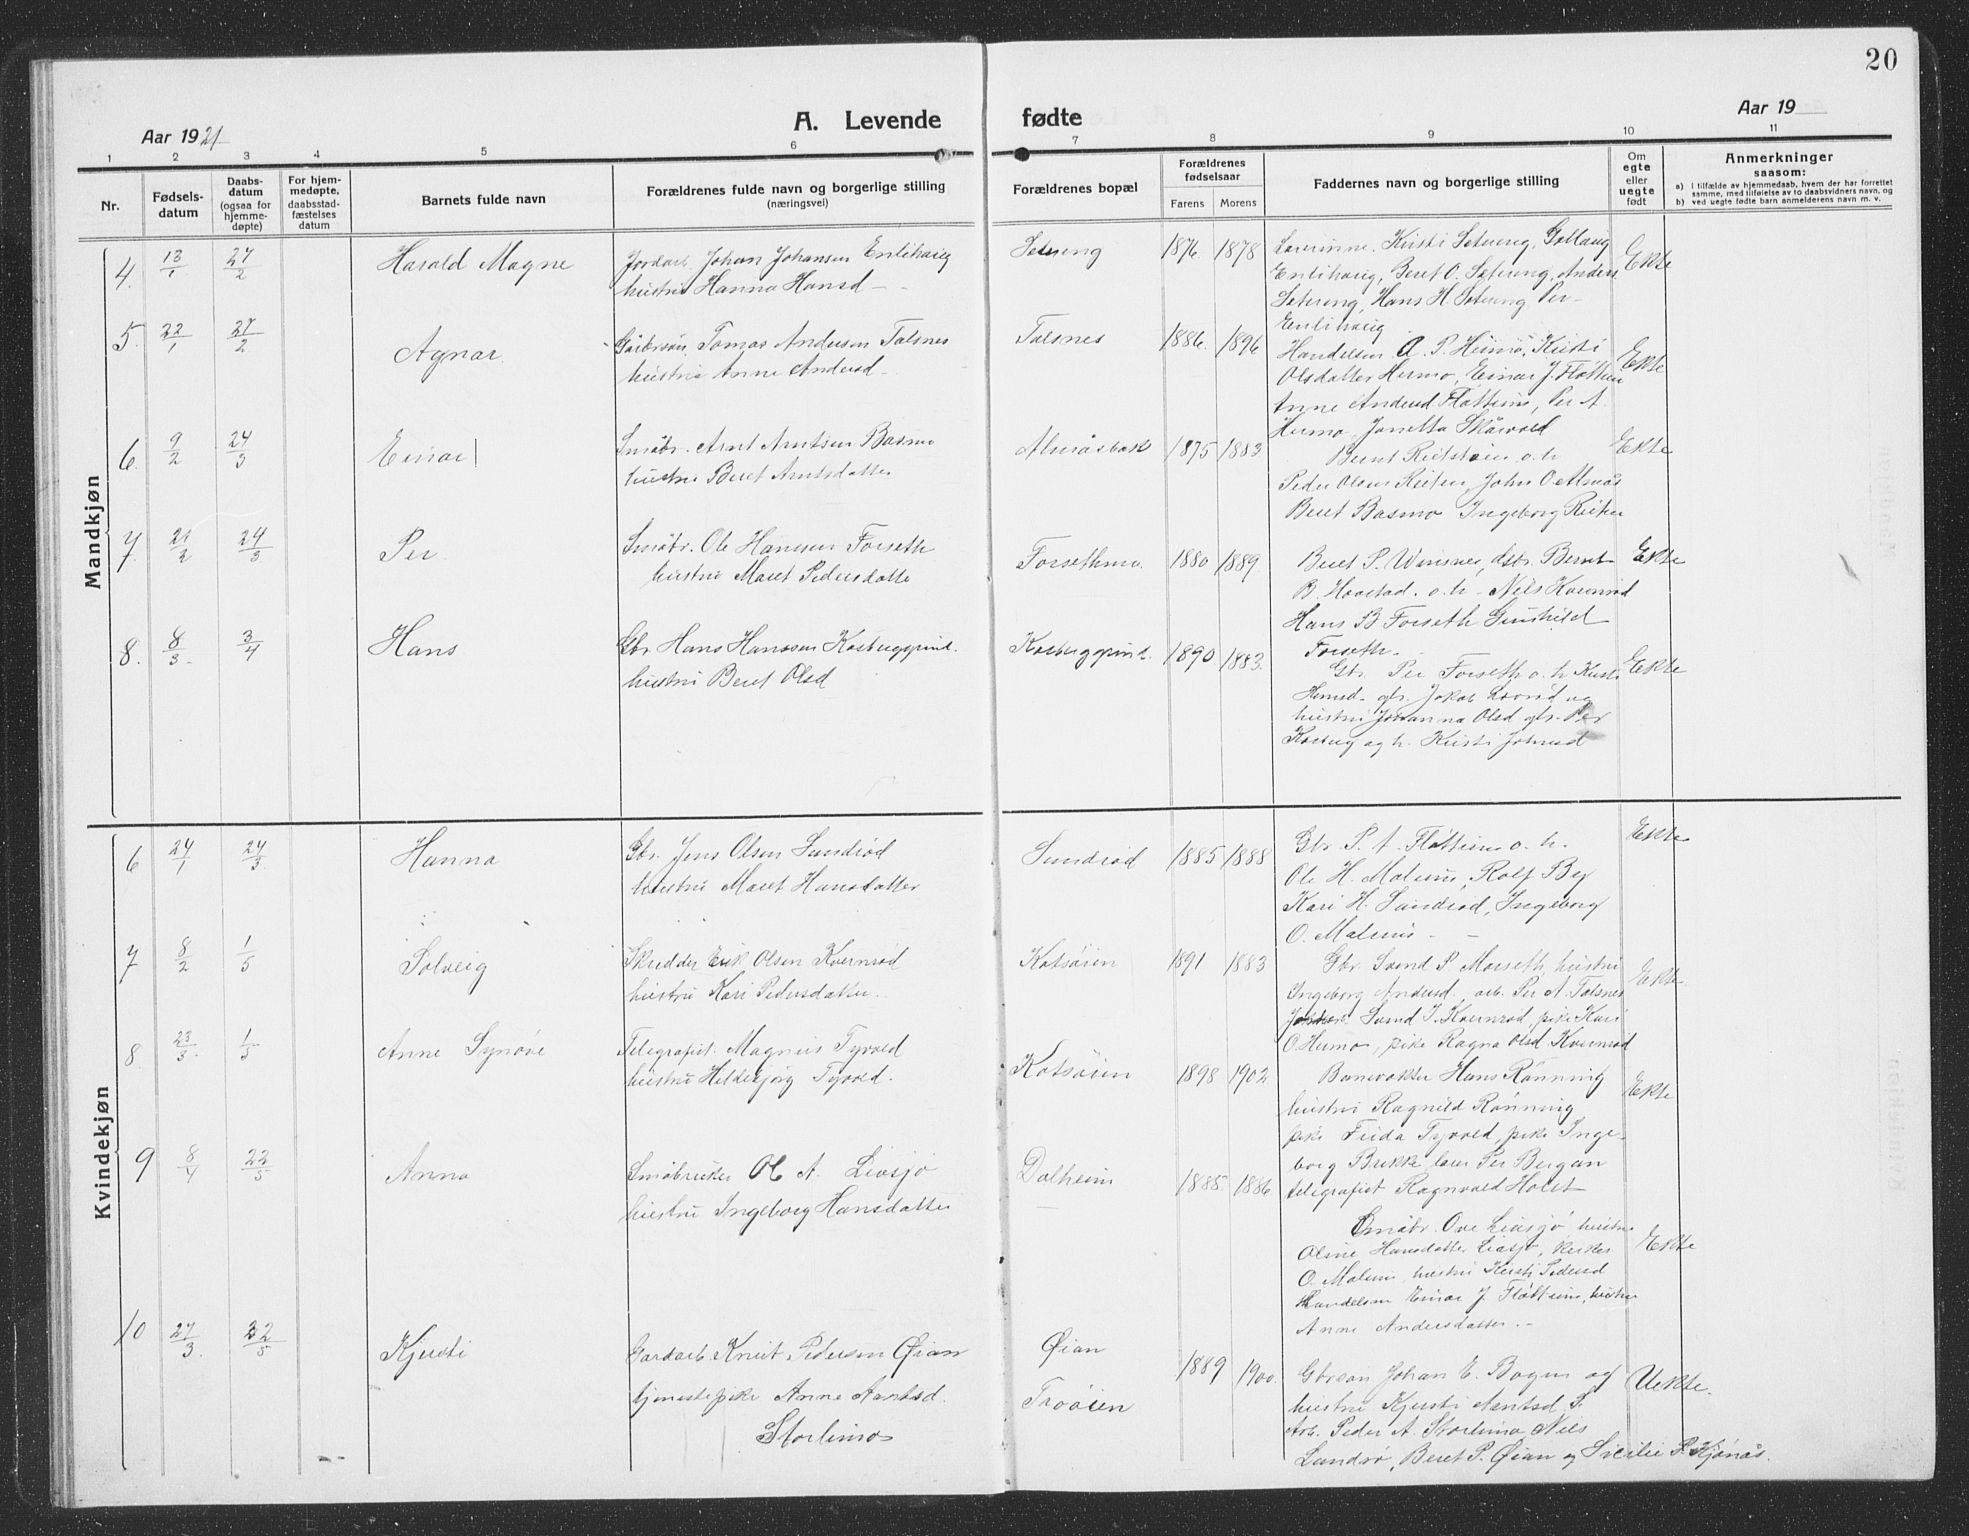 20
Aar 1921
A. Levende
fødte
Aar 19
1 2 3 4 5 6 7 8 9 10 11
Nr.
Fødsels-
datum
Daabs-
datum
(ogsaa for
hjemme-
døpte)
For hjem-
medøpte,
daabsstad-
fæstelses
datum
Barnets fulde navn
Forældrenes fulde navn og borgerlige stilling
(næringsvei)
Forældrenes bopæl
Forældrenes
fødselsaar
Farens Morens
Faddernes navn og borgerlige stilling
Om
egte
eller
uegte
født
Anmerkninger
saasom:
a) i tilfælde av hjemmedaab, hvem der har forrettet
samme, med tilføielse av to daabsvidners navn, og
b) ved uegte fødte barn anmelderens navn m. v.
Mandkjøn
4. 13/1 27/2 Harald Magne
Jordarb. Johan Johansen Enlihaug
hustru Hanna Hansd
Setereng 1876. 1878
Lærerinne Kirsti Setereng, Gollaug
Enlihaug, Beret O. Setereng, Anders
Setereng, Hans H. Setereng, Per
Enlihaug
Ekte
5. 22/1 27/2 Agnar
Gårbrson Tomas Andersen Talsnes
hustru Anne Andersd
Talsnes 1886. 1896
Handelsm A. P. Heimo, Kirsti
Olsdatter Hermo, Einar J. Fløttum
Anne Andersd Fløttum, Per A.
Hermo, Jonetta Skårvold
Ekte
6. 9/2 24/3 Einar
Småbr. Arnt Arntsen Basmo
hustru Beret Arntsdatter
Almåsbak 1875 1883
Bernt Reitstøen o. h.
Peder Olsen Reiten, John O. Almås
Beret Basmo Ingeborg Reiten
Ekte
7. 21/2 24/3 Per.
Småbr. Ole Hansen Forseth
hustru Maret Pedersdatter
Forsethmo. 1880 1889
Beret P. Winsnes, Bernt
B. Hovstad. o. h. Nils Kvernrød
Hans B Forseth Gunhild
Forseth.
Ekte
8. 8/3. 3/4 Hans
Gbr. Hans Hanssen Kosberggrind.
hustru Beret Olsd
Kosberggrind. 1890 1883.
Gbr. Per Forseth o. h Kirsti
gbr. Jakob og
hustru Johanna Olsd gbr. Per
Kosberg og h. Kirsti Johnsd
Ekte
Kvindekjøn
6 24/1 24/3. Hanna
Gbr. Jens Olsen Sundrød
hustru Maret Hansdatter
Sundrød 1885 1888
Gbr. P. A. Fløttum o. h.
Ole H. Malum, Rolf By
Kari H. Sundrød, Ingeborg
O. Malum
Ekte
7 8/2 1/5 Solveig
Skredder Erik Olsen Kvernrød
hustru Kari Pedersdatter.
Kotsøien 1891 1883
Gbr. Svend P. Morseth, hustru
Ingeborg Andersd, arb. Per A. Talsnes
Svend J. Kvernrød, pike Kari
O. Hermo, pike Ragna Olsd Kvernrød
Ekte
8 23/3. 1/5 Anne Synøve
Telegrafist. Magnus Tyvold
hustru Hildebjørg Tyvold.
Kotsøien 1898 1902
Banevokter Hans Rønning
hustru Ragnild Rønning
pike Frida Tyvold, pike Inge-
borg Brekke Per Bergan
telegrafist Ragnvald Holst
Ekte
9 8/4 22/5 Anna
Småbruker Ole A. Liasjø
hustru Ingeborg Hansdatter
Dalheim 1885. 1886
Småbr. Ove Liasjø hustru
Oline Hansdatter Liasjø,
O. Malum, hustru Kirsti Pedersd
Handelsm Einar J. Fløttum, hustru
Anne Andersdatter.
Ekte
10 27/3. 22/5 Kjersti
Gardarb. Knut Pedersen Øian
tjenestepike Anne Arntsd.
Storlimo
Øian
Troøien
1889 1900.
Gbrsøn Johan E. Bogen og
hustru Kjersti Arntsd.
Arb. Peder A. Storlimo Nils
Lundrø, Beret P. Øian og Sicilie P. Kjønås.
Uekte.